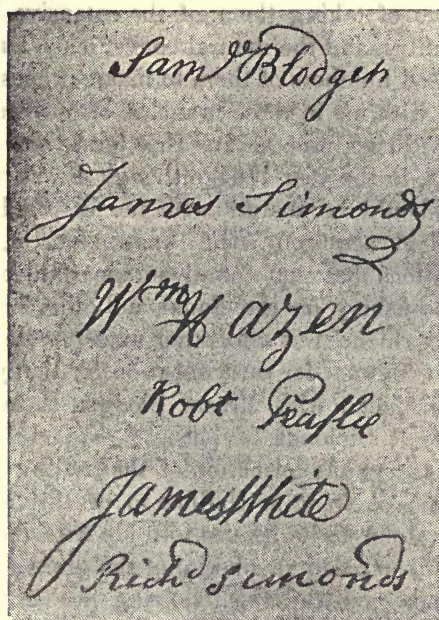 Sam^ll Blodget
James Simonds
W^m Hazen
Robt Peaslie
James White
Rich^d Simonds